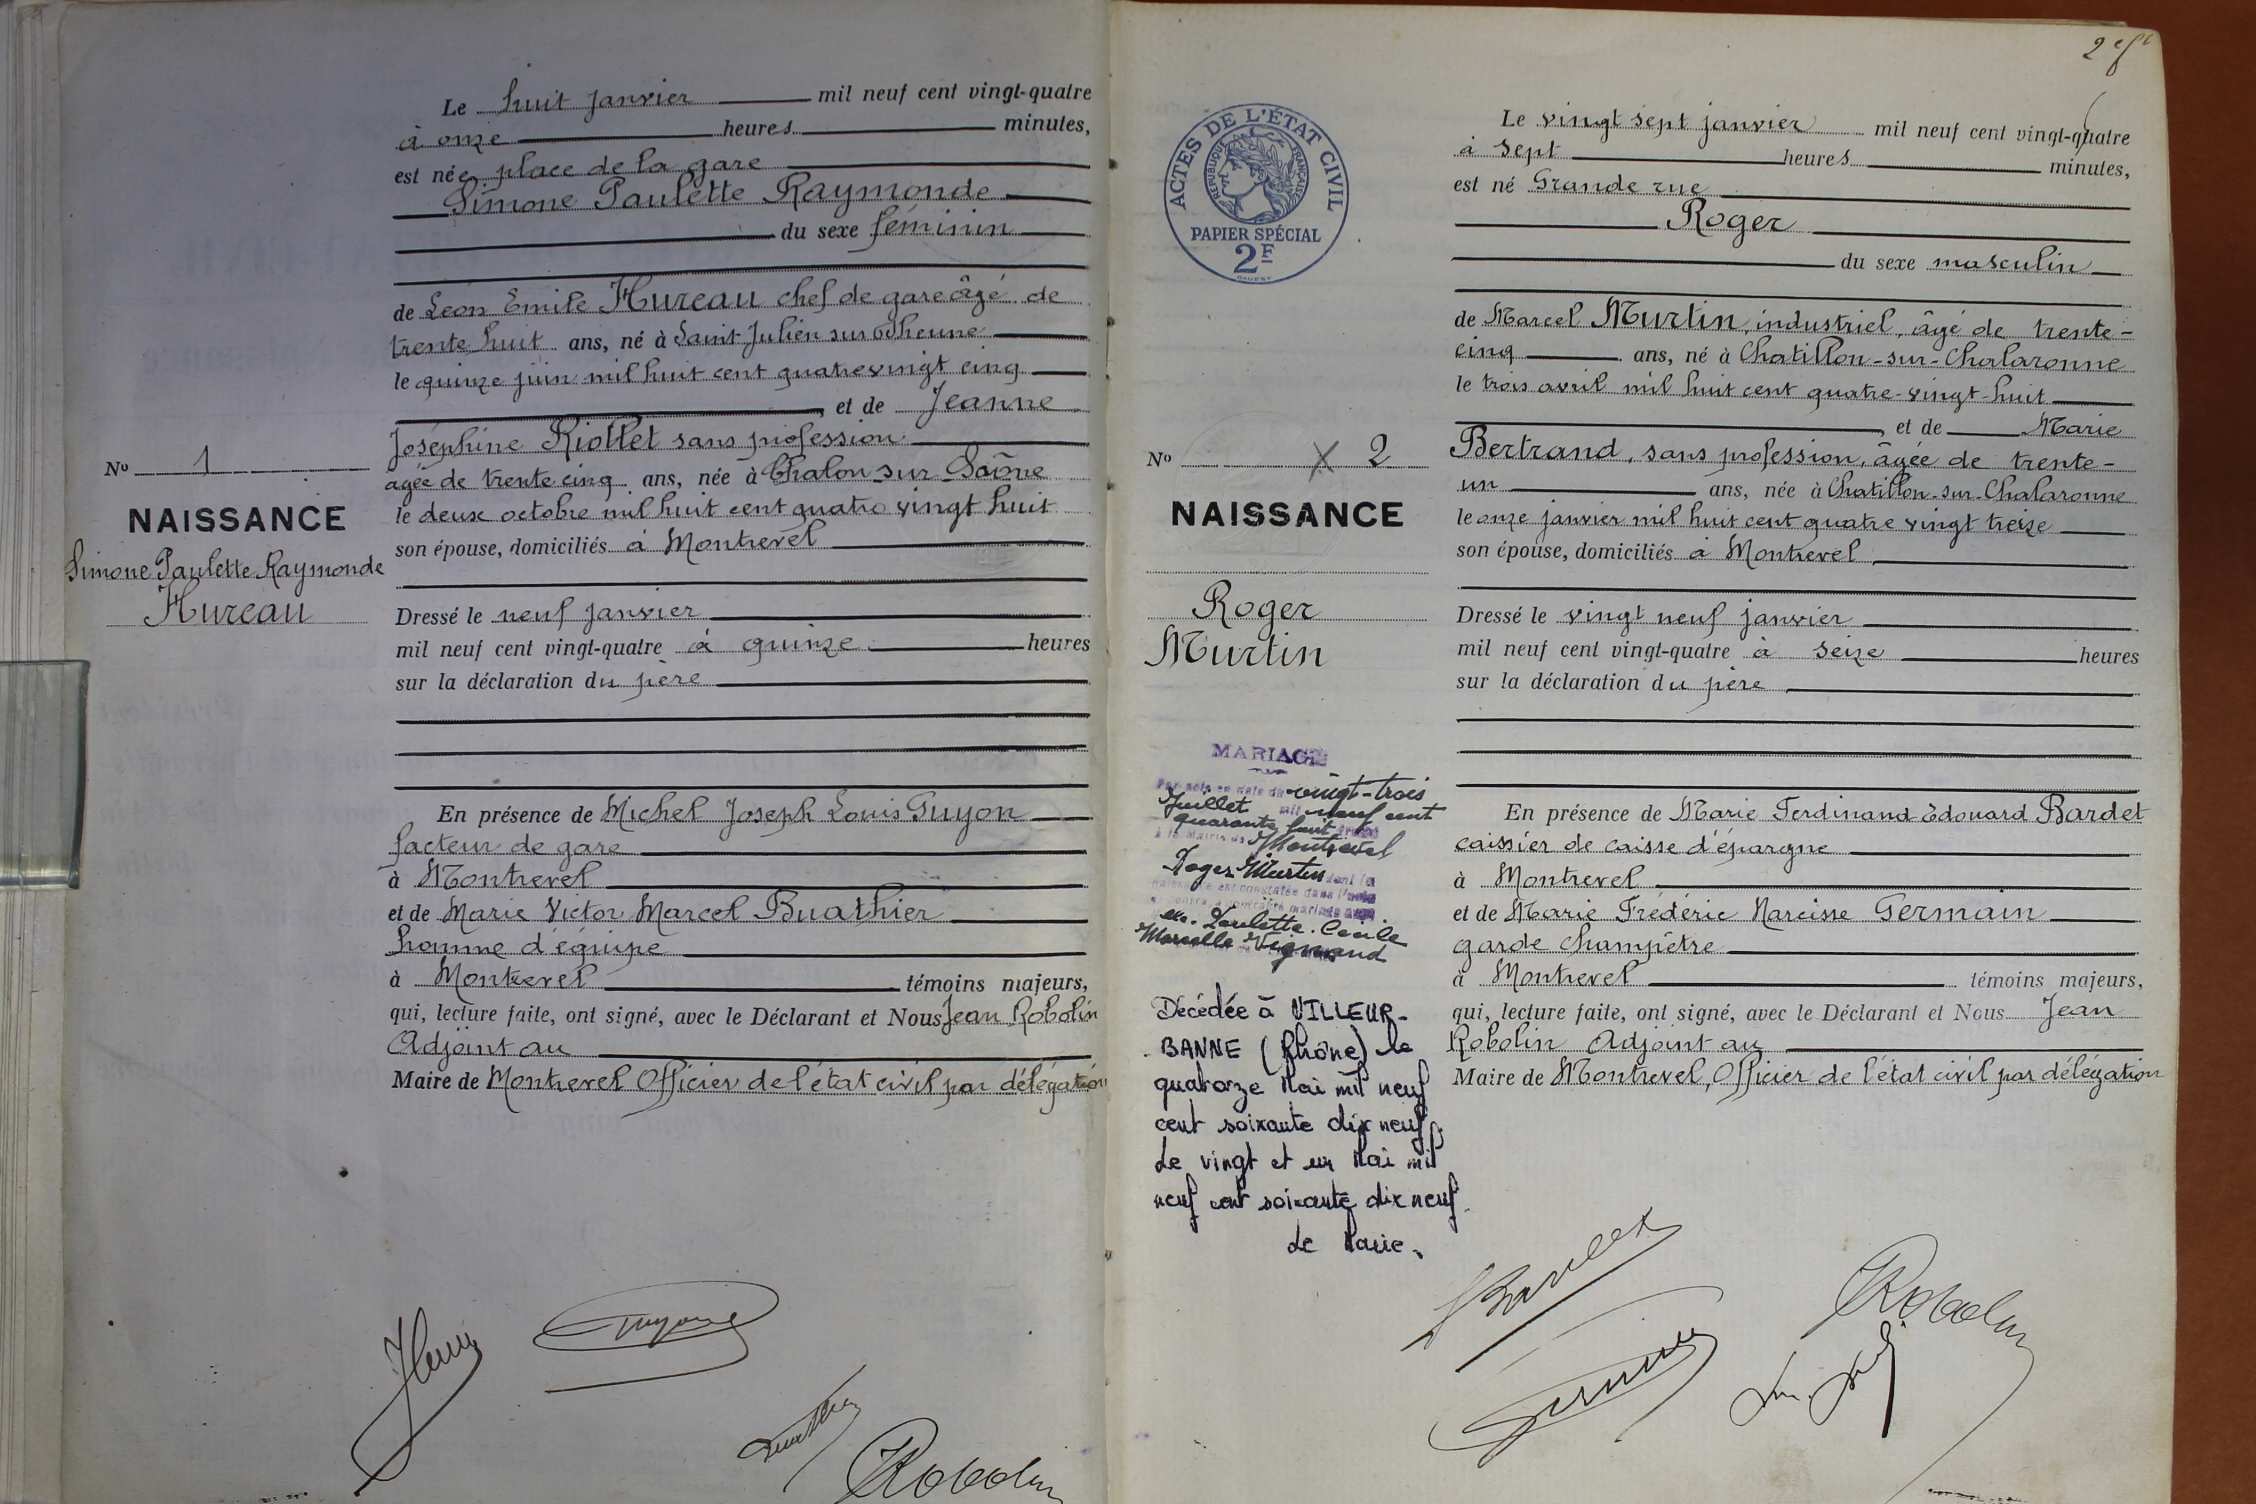 Le huit janvier mil neuf cent vingt-quatre
à onze heures minutes,
est née place de la gare
Simone Paulette Raymonde
du sexe féminin
de Léon Emile Hureau chef de gare âgé de
trente huit ans, né à Saint-Julien sur
le quinze juin mil huit cent quatre vingt cinq
, et de Jeanne
Joséphine Riollet sans profession
agée de trente cinq ans, née à Chalon sur Saône
le deux octobre mil huit cent quatre vingt huit
son épouse, domiciliés à Montrevel
No 1
NAISSANCE
Simone Paulette Raymonde
Hureau
Dressé le neuf janvier
mil neuf cent vingt-quatre à quinze heures
sur la déclaration du père
En présence de Michel Joseph Louis Guyon
facteur de gare
à Montrevel
et de Marie Victor Marcel Buathier
homme d'équipe
à Montrevel témoins majeurs,
qui, lecture faite, ont signé, avec le Déclarant et Nous Jean Robolin
Adjoint au
Maire de Montrevel Officier de l'état civil par délégation
Guyon
Robolin
ACTES DE L'ÉTAT CIVIL
RÉPUBLIQUE FRANÇAISE
PAPIER SPÉCIAL
2F
Le vingt sept janvier mil neuf cent vingt-quatre
à sept heures minutes,
est né Grande rue
Roger
du sexe masculin
de Marcel Murtin, industriel, âgé de trente-
cinq ans, né à Chatillon-sur-Chalaronne
le trois avril mil huit cent quatre-vingt-huit
, et de Marie
Bertrand, sans profession, âgée de trente-
un ans, née à Chatillon-sur-Chalaronne
le onze janvier mil huit cent quatre vingt treize
son épouse, domiciliés à Montrevel
No X 2
NAISSANCE
Roger
Murtin
Dressé le vingt neuf janvier
mil neuf cent vingt-quatre à seize heures
sur la déclaration du père
MARIAGE
Par acte en date du vingt-trois
Juillet mil neuf cent
quarante huit
à la Mairie de Montrevel
Roger Murtin dont la
naissance est constatée dans l'acte
ci-contre a contracté mariage avec
Paulette. Cécile
Marcelle Vignand
Décédée à VILLEUR-
BANNE (Rhône) le
quatorze Mai mil neuf
cent soixante dix neuf.
Le vingt et un Mai mil
neuf cent soixante dix neuf.
Le Maire.
En présence de Marie Ferdinand Edouard Bardet
caissier de caisse d'épargne
à Montrevel
et de Marie Frédéric Narcisse Germain
garde champêtre
à Montrevel témoins majeurs,
qui, lecture faite, ont signé, avec le Déclarant et Nous Jean
Robolin Adjoint au
Maire de Montrevel, Officier de l'état civil par délégation
Bardet
Robolin
Germain